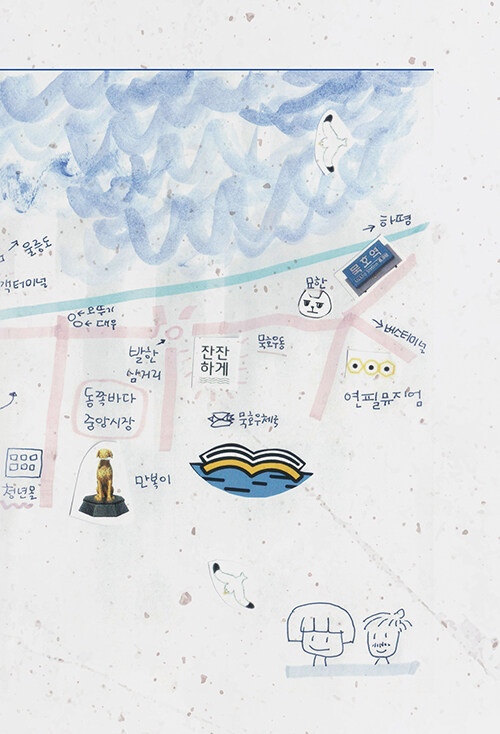 하평
울릉도
묵호역
객터미널
묘한
오뚜기
대우
버스터미널
발한
삼거리
잔잔
하게
묵호우동
연필뮤지엄
동쪽바다
중앙시장
묵호우체국
만복이
청년몰